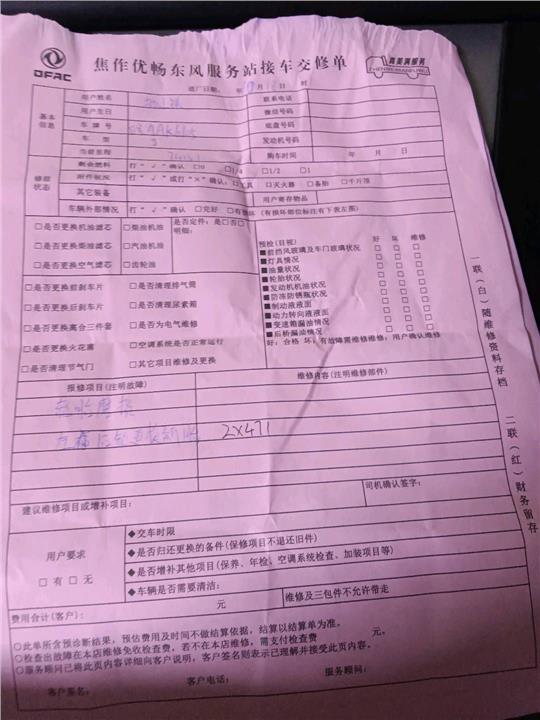 DFAC
焦作优畅东风服务站接车交修单
真美满服务
进厂日期: 年 月 日 时
基本信息
用户姓名 联系电话
用户生日 微信号码
车牌号 底盘号码
车型 发动机号码
当前里程 购车时间 年 月 日
修前状态
剩余燃料 打"√"确认 □0 □1/4 □1/2 □1
附件状况 打"√"或打"×"确认:□工具 □灭火器 □备胎 □千斤顶
其它装备 用户寄存物品
车辆外部情况 打"√"确认 □完好 □有损坏 (有损坏部位标注有下表左图)
□是否更换机油滤芯 □柴油机油 是否定件:是□否□
□是否更换柴油滤芯 □汽油机油 明细:
□是否更换空气滤芯 □齿轮油
□是否更换前刹车片 □是否清理排气筒
□是否更换后刹车片 □是否清理尿素箱
□是否更换离合三件套 □是否为电气维修
□是否更换火花塞 □空调系统是否正常运行
□是否清理节气门 □其它项目维修及更换
预检(目视) 好 坏 维修
■前挡风玻璃及车门玻璃状况 □ □ □
■灯具情况 □ □ □
■油量状况 □ □ □
■轮胎状况 □ □ □
■发动机机油状况 □ □ □
■防冻防锈瓶状况 □ □ □
■制动液液面 □ □ □
■动力转向液液面 □ □ □
■变速箱漏油情况 □ □ □
■后桥漏油情况 □ □ □
好:合格 坏:有故障需维修维修:用户确认维修
报修项目(注明故障) 维修内容(注明维修部件)
2X471
建议维修项目或增补项目: 司机确认签字:
用户要求
□有 □无
◆交车时限
◆是否归还更换的备件(保修项目不退还旧件)
◆是否增补其他项目(保养、年检、空调系统检查、加装项目等)
◆车辆是否需要清洁: 维修及三包件不允许带走
费用合计(客户): 元
○此单所含预诊断结果,预估费用及时间不做结算依据,结算以结算单为准。
○检查出故障在本店维修免收检查费,若不在本店维修,需支付检查费 元。
○服务顾问已将此页内容详细向客户说明,客户签名则表示已理解并接受此页内容。
客户签名: 客户电话: 服务顾问:
一联(白)随维修资料存档
二联(红)财务留存